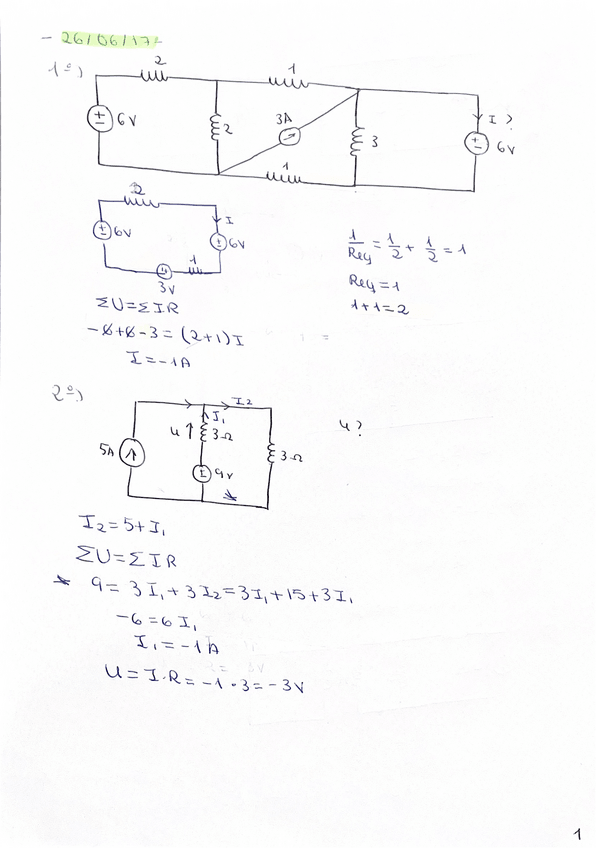 - 26/06/17-
1º)
2
1
6V
2
3A
1
3
I ?
6V
2
6V
I
6V
1
3V
1/Req = 1/2 + 1/2 = 1
Req = 1
1+1=2
ΣU=ΣIR
-6+6-3=(2+1)I
I=-1A
2º)
I2
I1
u
3Ω
5A
9V
3Ω
u?
I2=5+I1
ΣU=ΣIR
* 9=3I1+3I2=3I1+15+3I1
-6=6I1
I1=-1A
U=I·R=-1·3=-3V
1